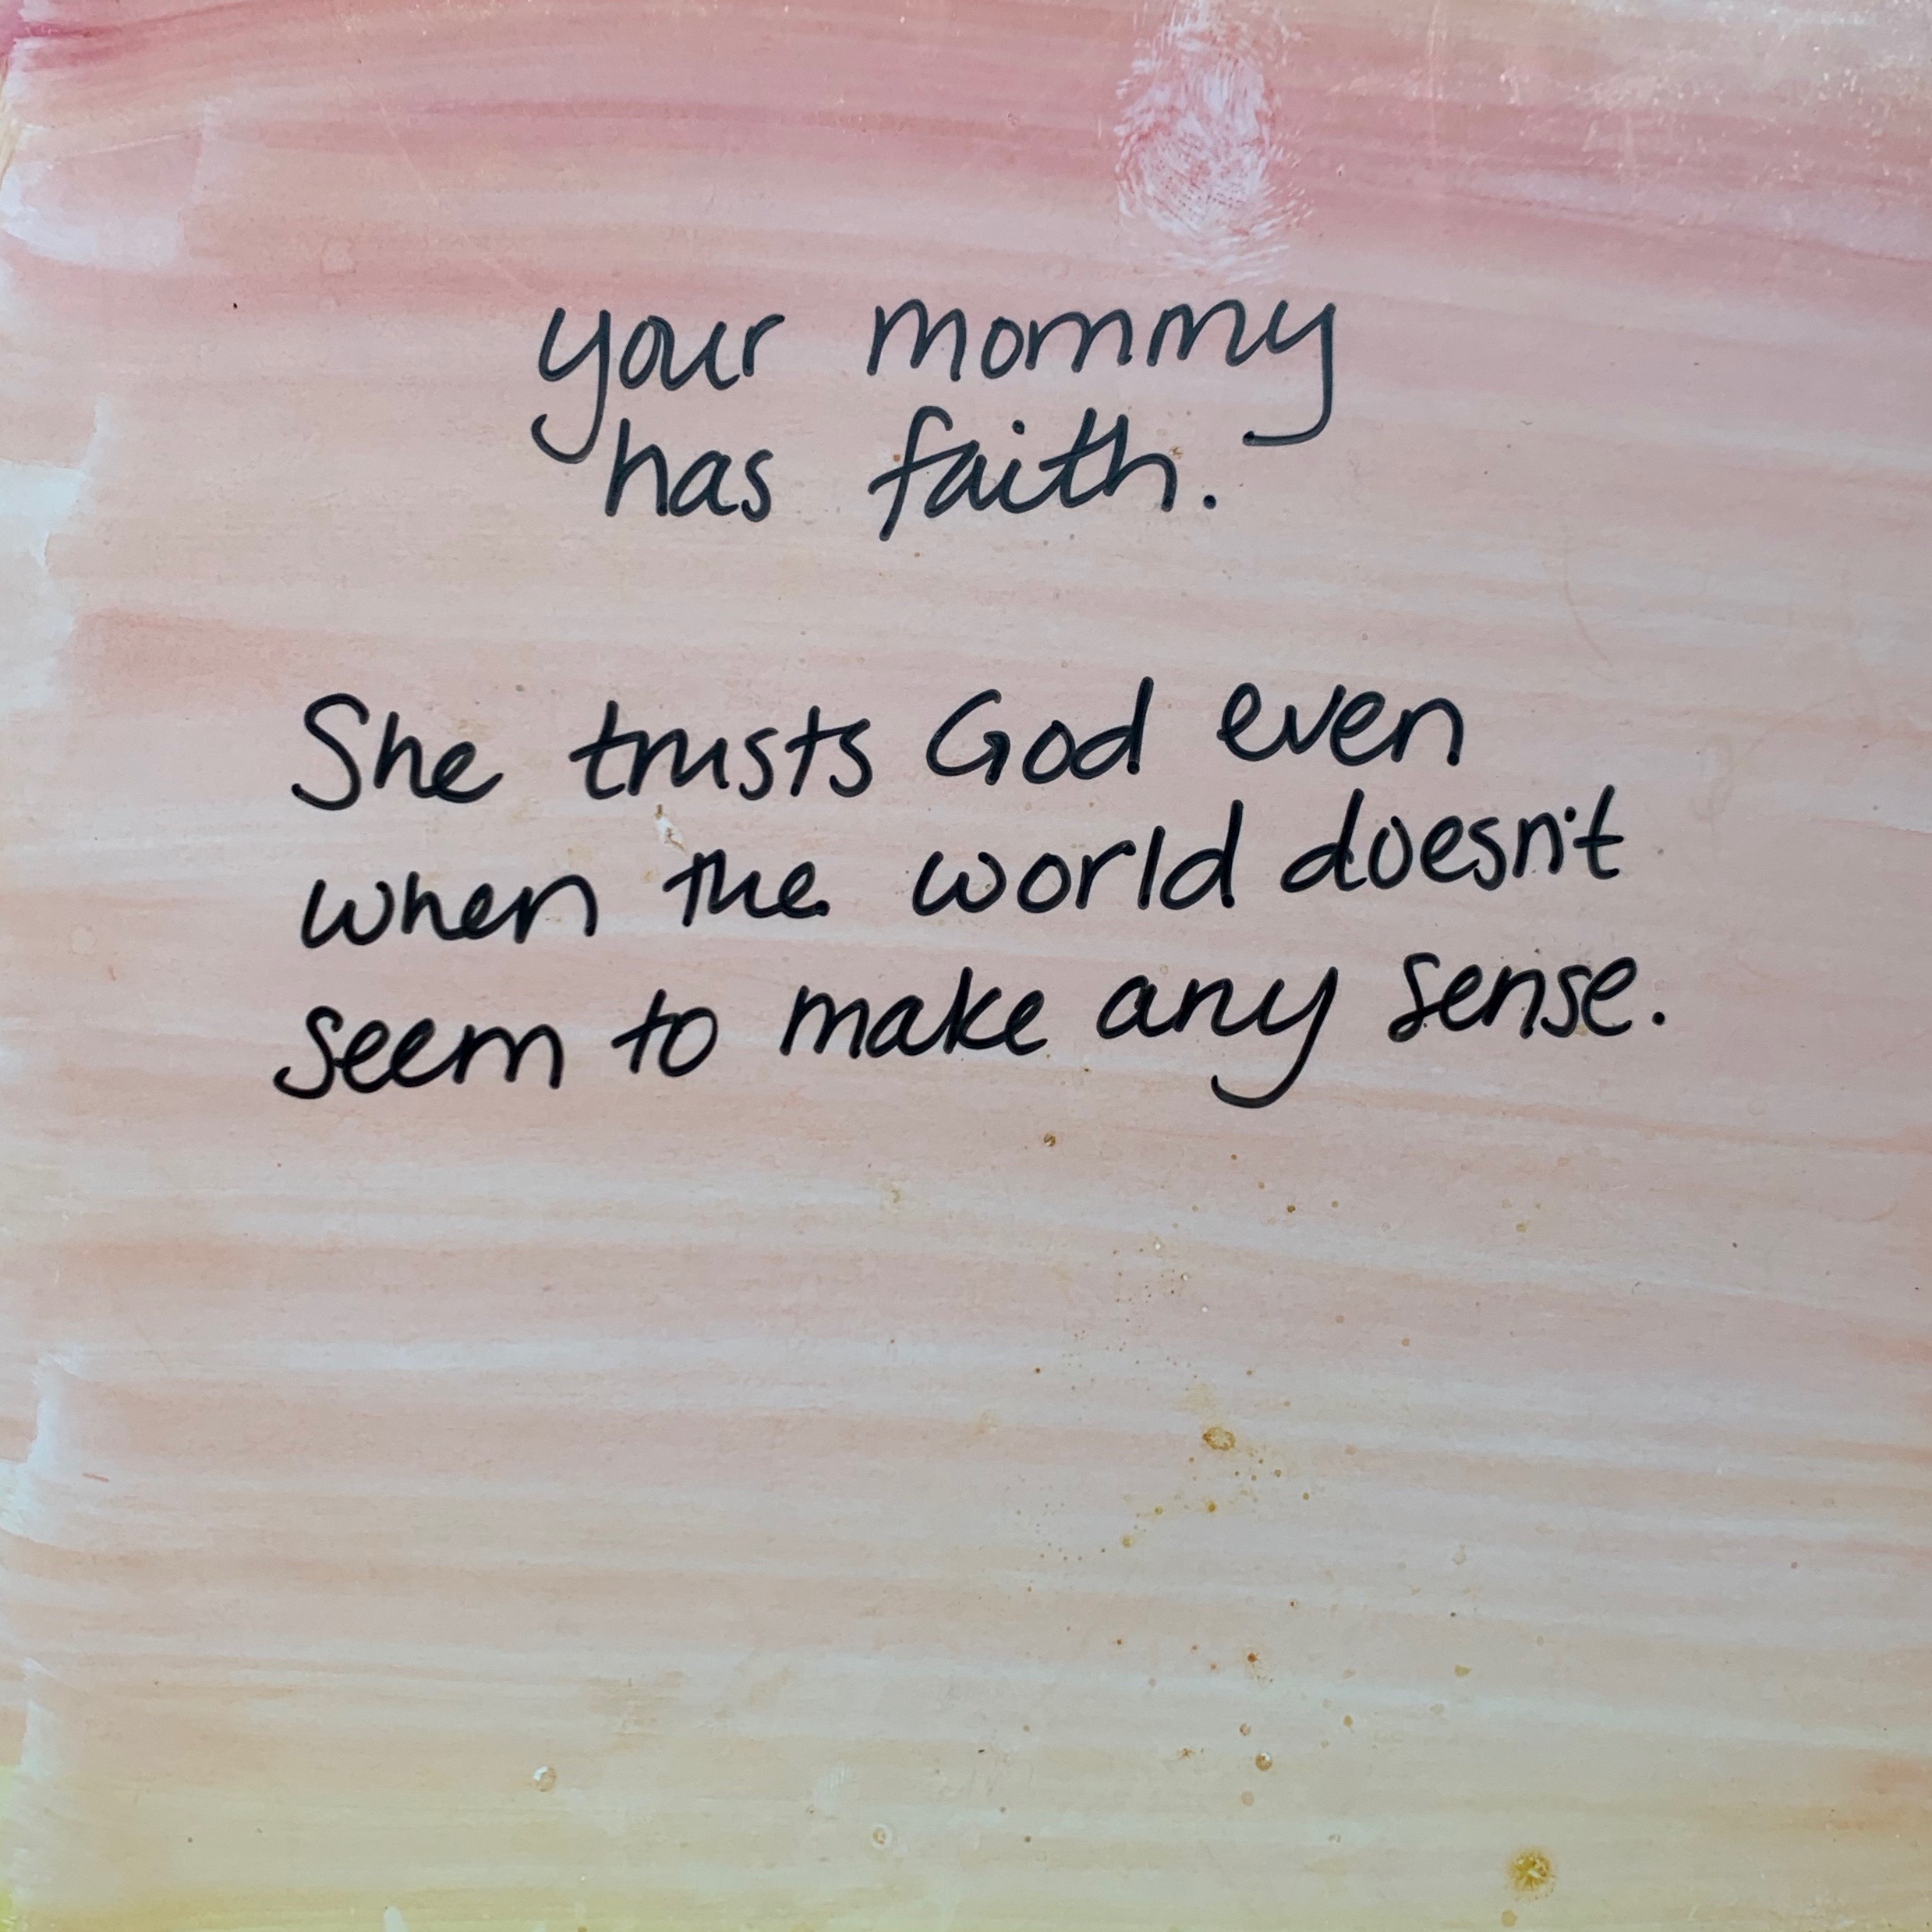 your mommy
has faith.
She trusts God even
when the world doesn't
seem to make any sense.